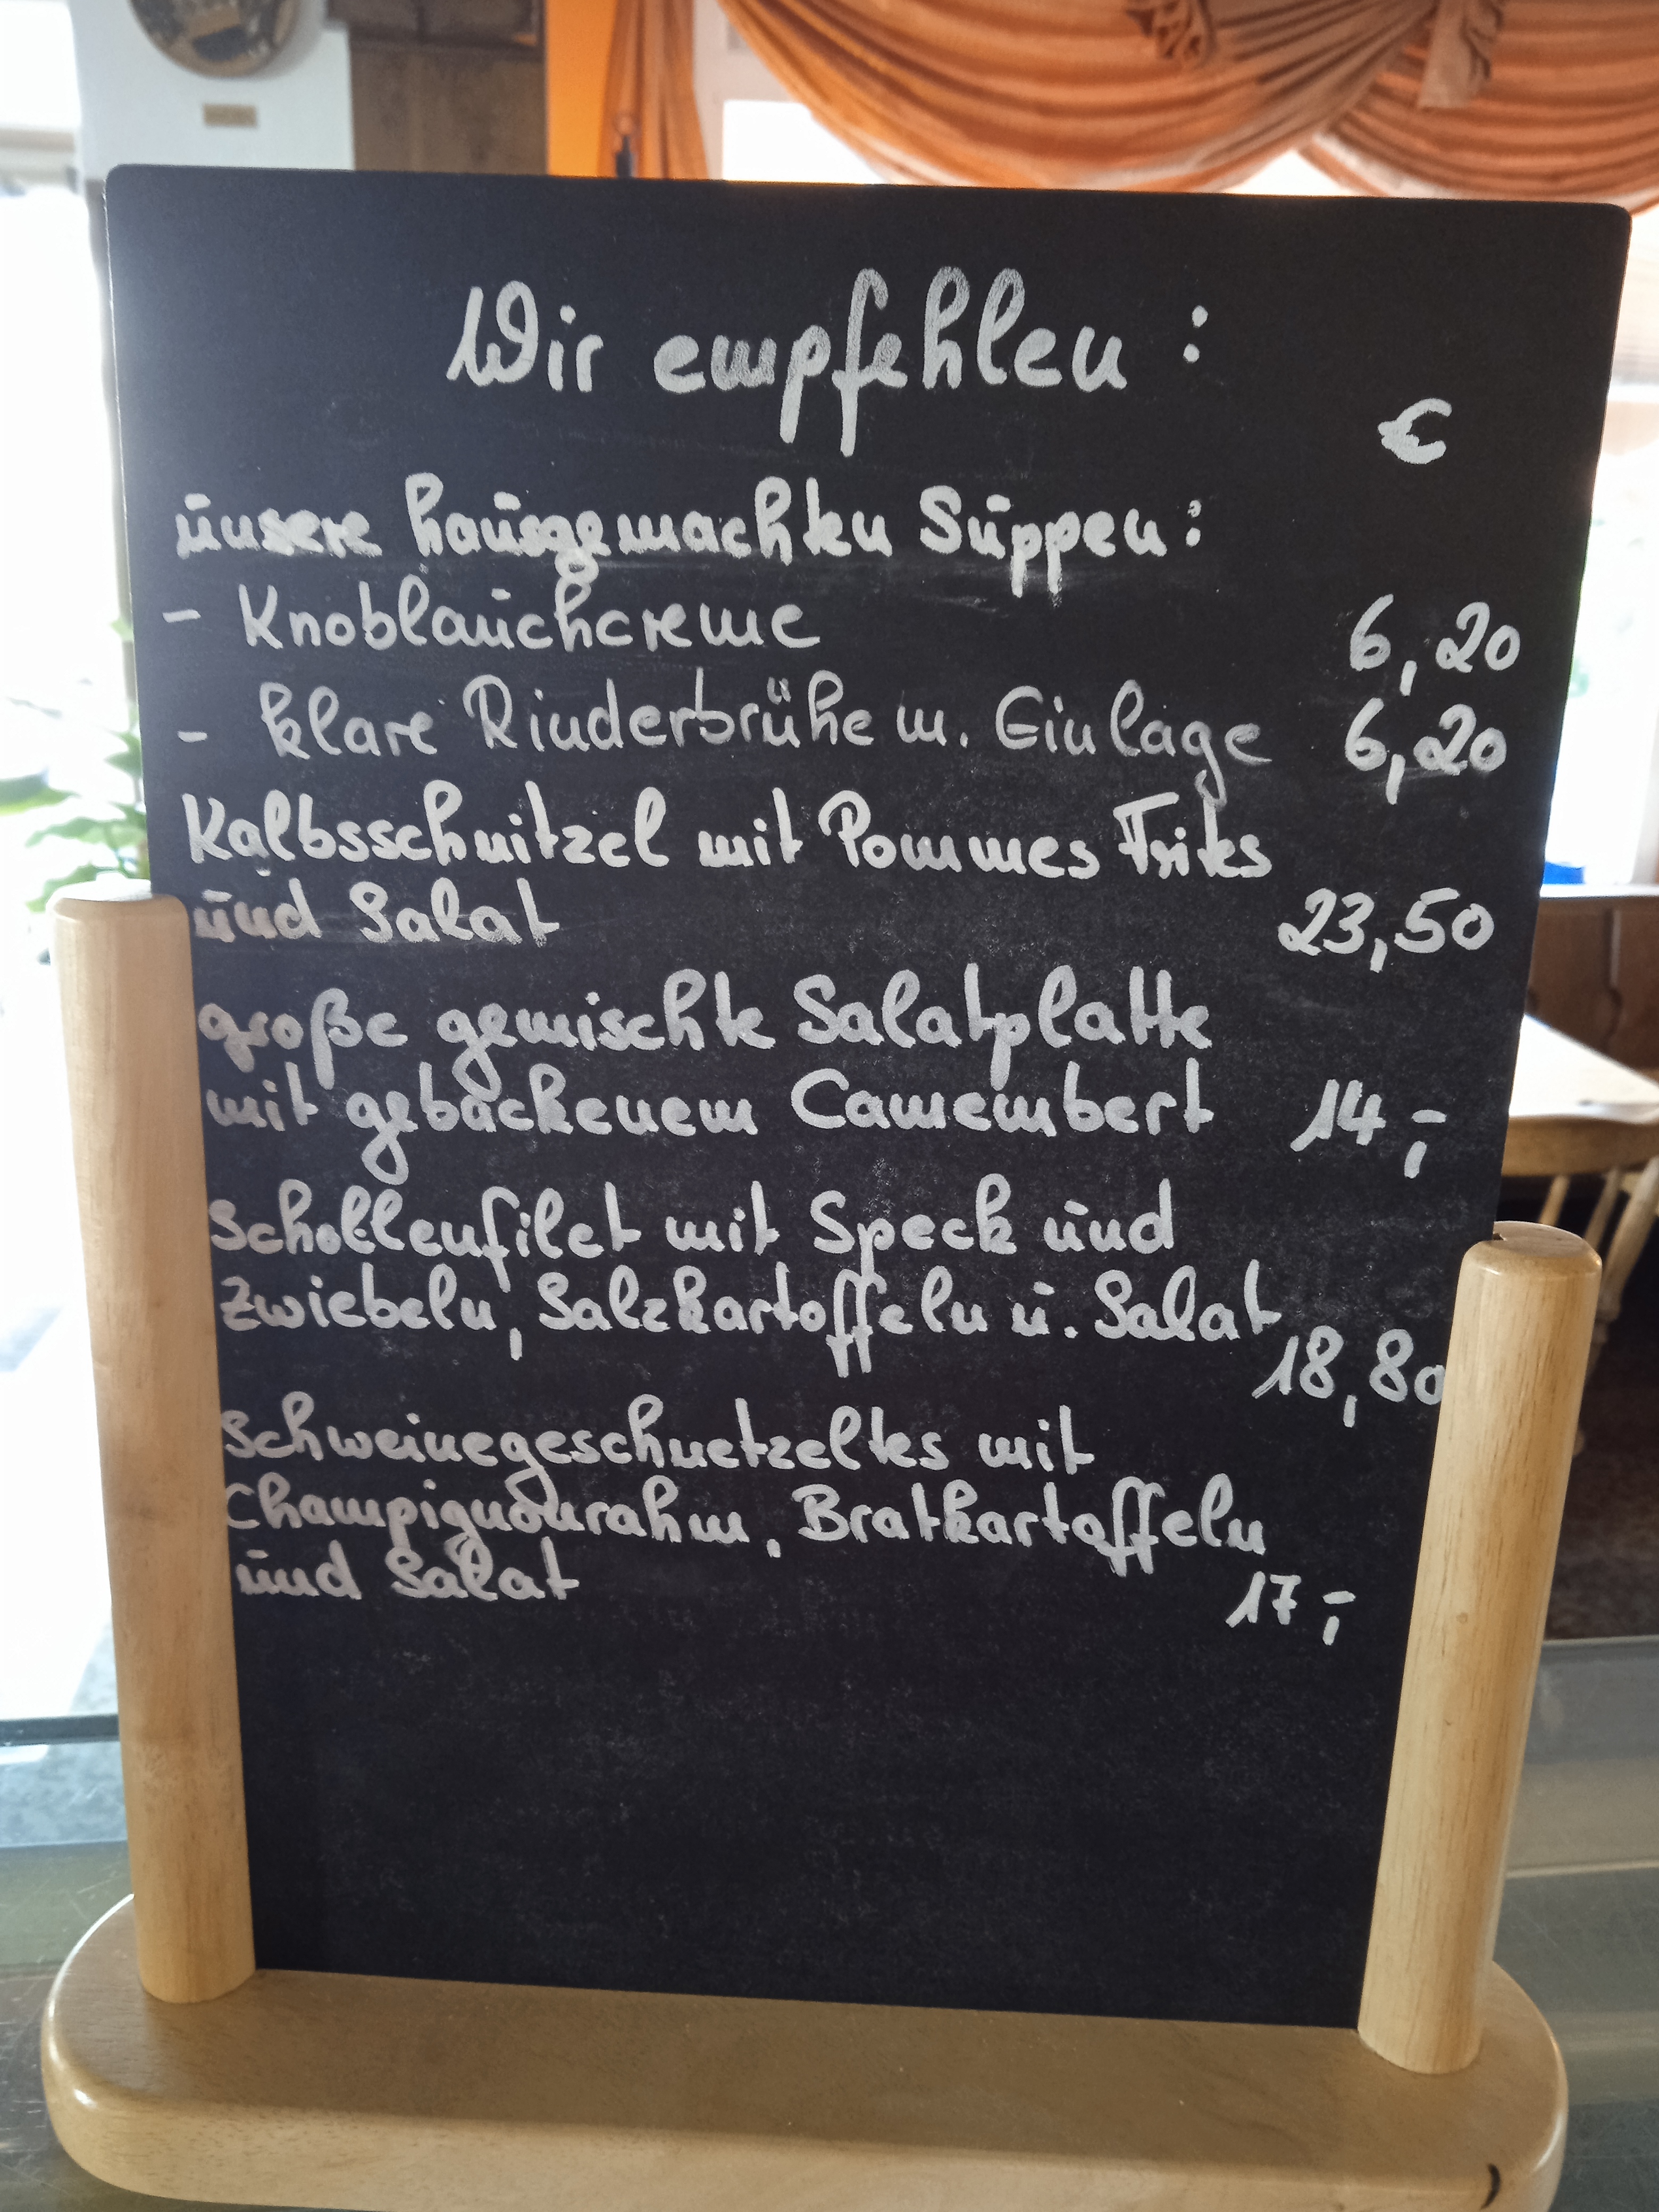 Wir empfehlen:
€
unsere hausgemachten Suppen:
- Knoblauchcreme 6,20
- klare Rinderbrühe m. Einlage 6,20
Kalbsschnitzel mit Pommes Frites
und Salat 23,50
große gemischte Salatplatte
mit gebackenem Camembert 14,-
Schollenfilet mit Speck und
Zwiebeln, Salzkartoffeln u. Salat
18,80
Schweinegeschnetzeltes mit
Champignonrahm, Bratkartoffeln
und Salat
17,-